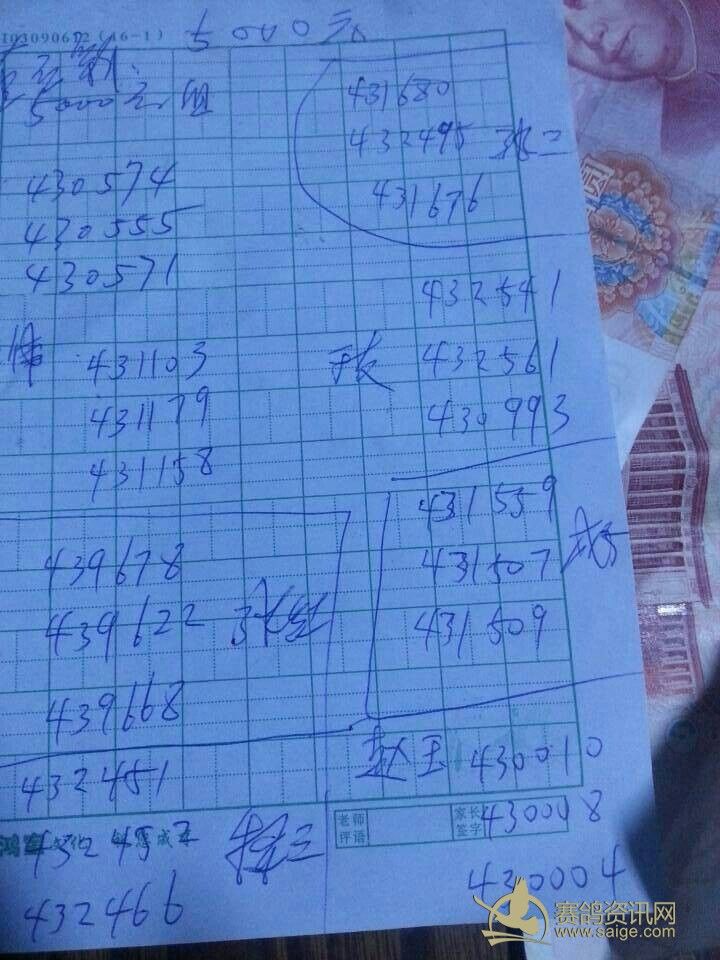 1030906T2(16-1) 5000元
5000元组
430574
430555
430571
431103
431179
431158
439678
439622
439668
432451
432452
432466
431680
432495 张二
431676
432541
432561
430993
431559
431507
431509
赵玉 430010
老师
评语
家长
签字
430008
430004
赛鸽资讯网
www.saige.com